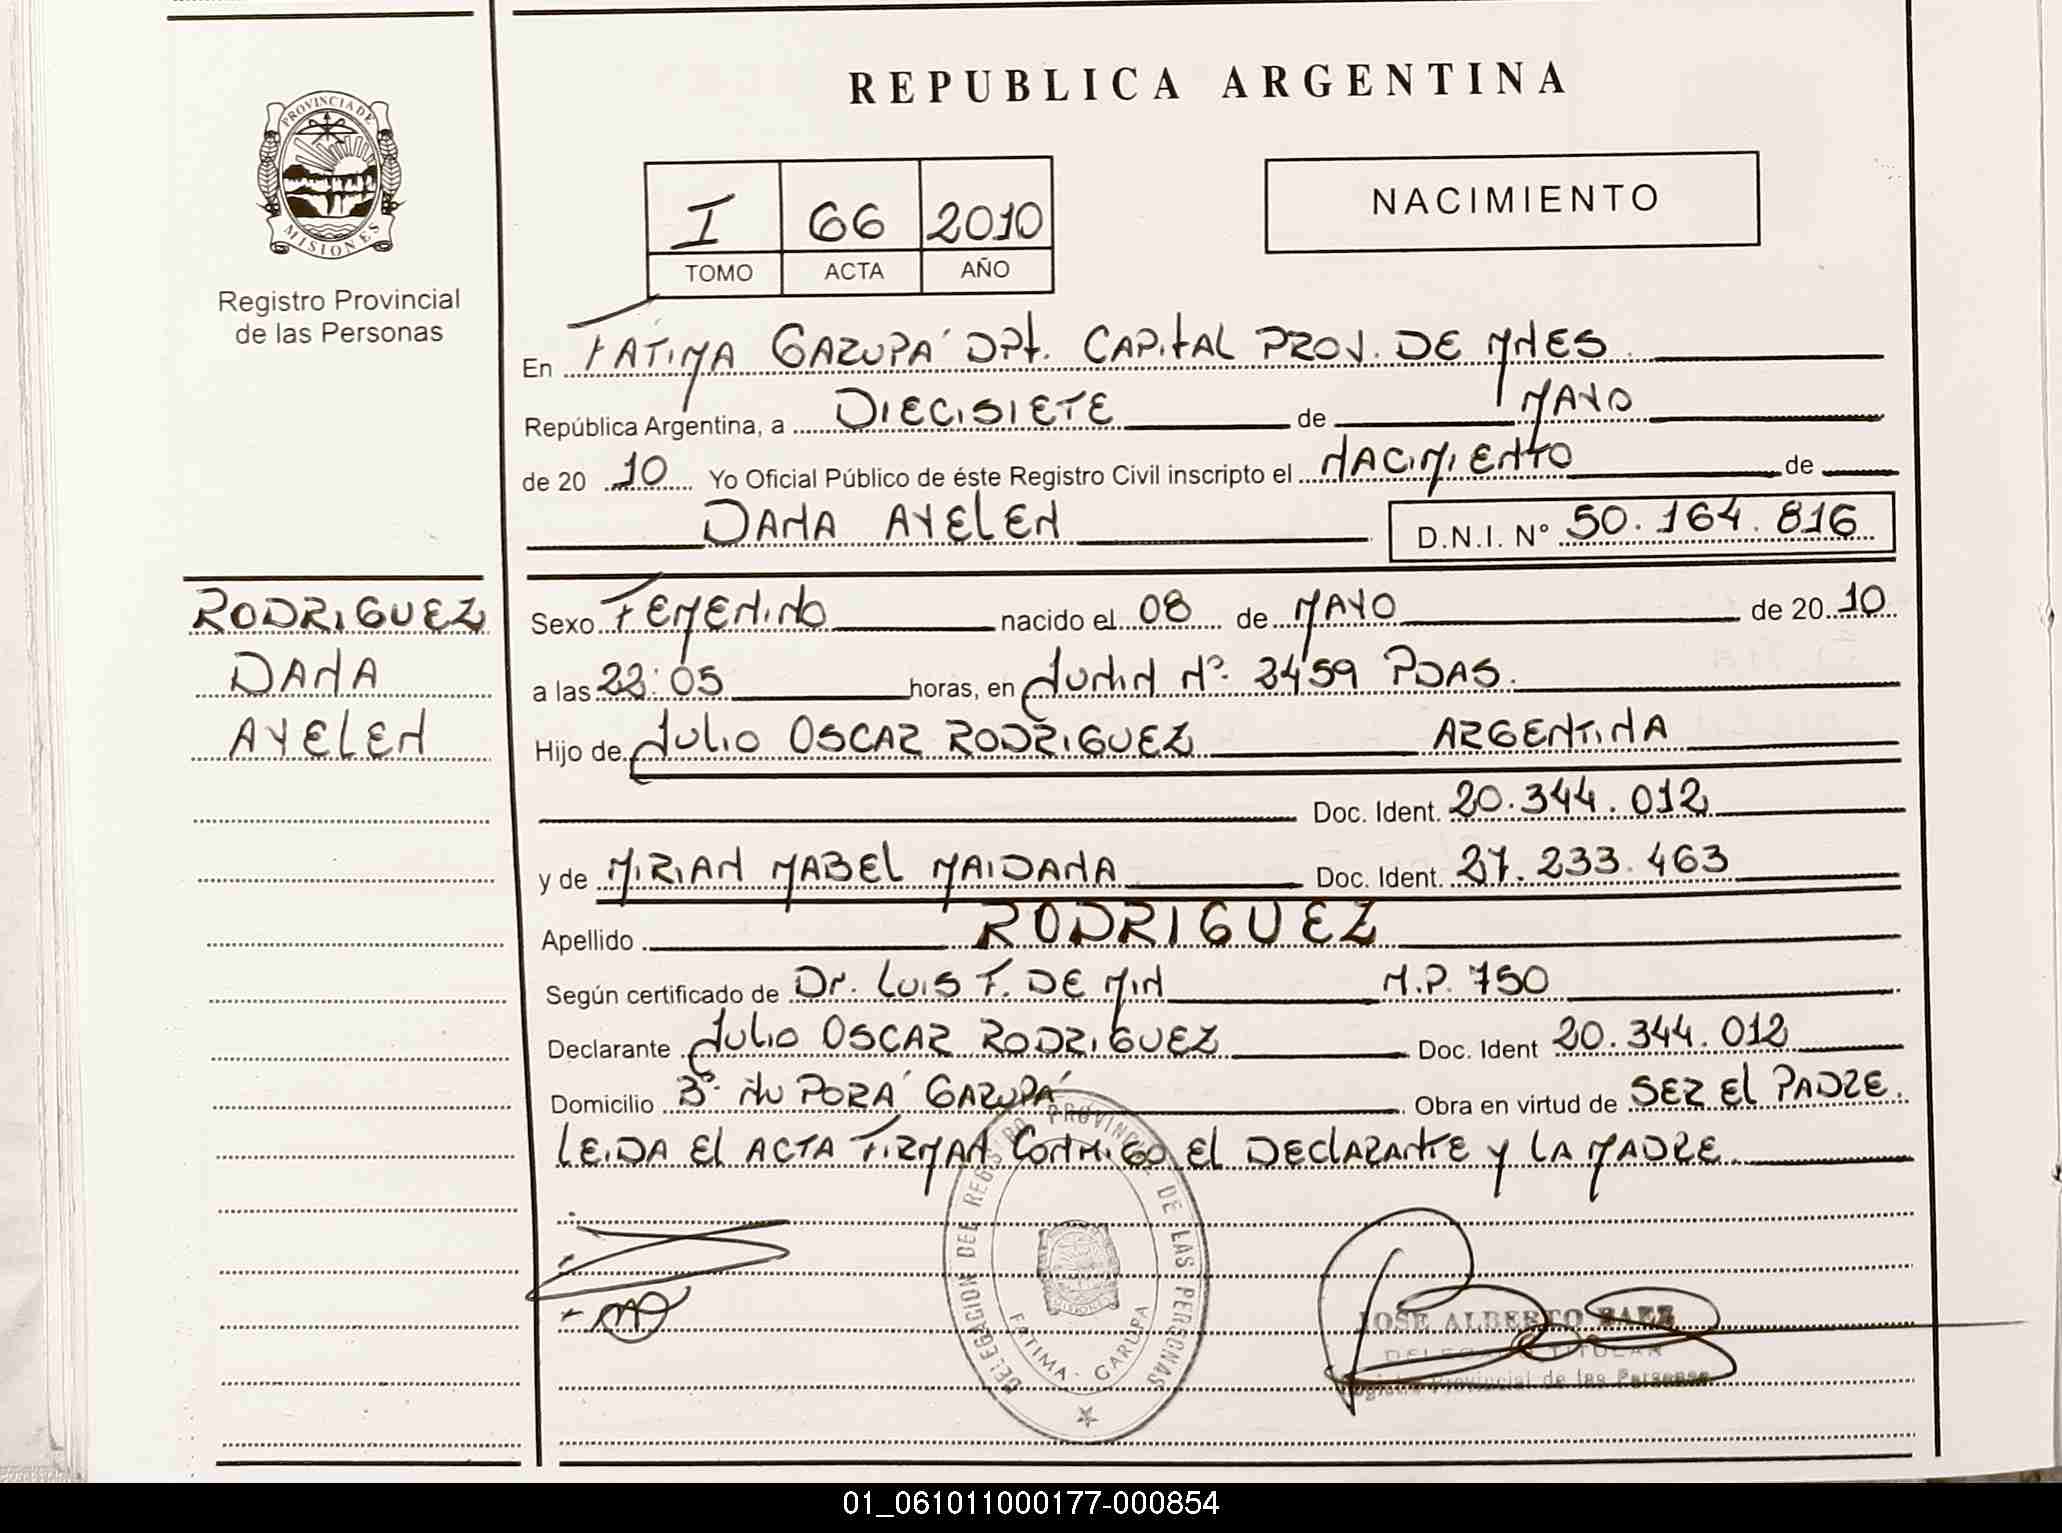 REPUBLICA ARGENTINA
PROVINCIA DE
MISIONES
Registro Provincial
de las Personas
I 66 2010
TOMO ACTA AÑO
NACIMIENTO
En FÁTIMA GARUPÁ DPt. CAPITAL PROV. DE MNES
República Argentina, a DIECISIETE de MAYO
de 20 10 Yo Oficial Público de éste Registro Civil inscripto el NACIMIENTO de
DANA AYELEN D.N.I. N° 50.164.816
RODRIGUEZ
DANA
AYELEN
Sexo FEMENINO nacido el 08 de MAYO de 20 10
a las 22:05 horas, en JUNIN N° 2459 PDAS.
Hijo de JULIO OSCAR RODRIGUEZ ARGENTINA
Doc. Ident. 20.344.012
y de MIRIAN MABEL MAIDANA Doc. Ident. 27.233.463
Apellido RODRIGUEZ
Según certificado de Dr. LUIS F. DE MIN M.P. 750
Declarante JULIO OSCAR RODRIGUEZ Doc. Ident 20.344.012
Domicilio B° ÑU PORÁ GARUPÁ Obra en virtud de SER EL PADRE.
LEIDA EL ACTA FIRMAN CONMIGO EL DECLARANTE Y LA MADRE
DELEGACION DEL REGISTRO PROVINCIAL DE LAS PERSONAS
MISIONES
FATIMA - GARUPA
JOSE ALBERTO BAEZ
DELEGADO TITULAR
Registro Provincial de las Personas
01_061011000177-000854